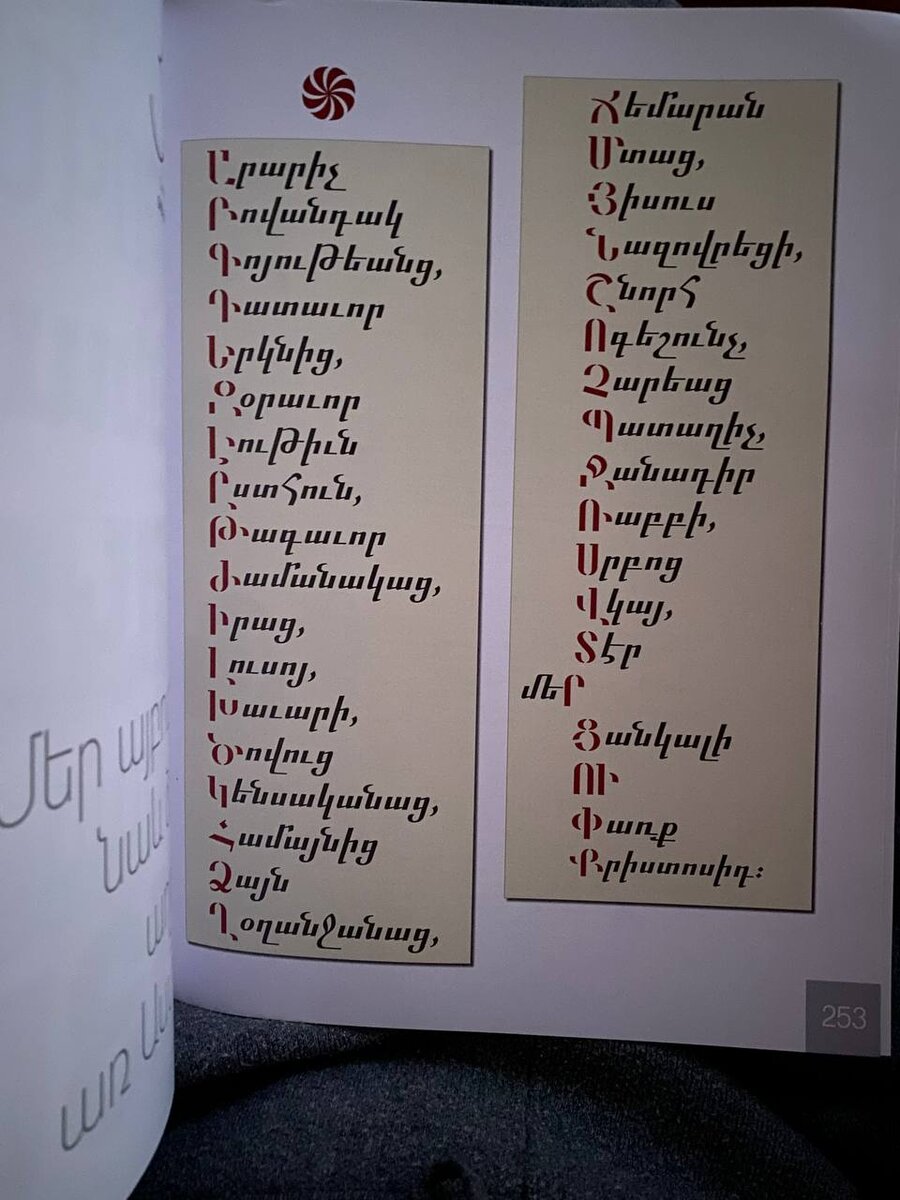 Մեր այբ
նաև
առ
Արարիչ
Բովանդակ
Գոյութեանց,
Դատաւոր
Երկնից,
Զօրաւոր
Էութիւն
Ըստհուն,
Թագաւոր
Ժամանակաց,
Իրաց,
Լուսոյ,
Խաւարի,
Ծովուց
Կենսականաց,
Համայնից
Ձայն
Ղօղանջանաց,
Ճեմարան
Մտաց,
Յիսուս
Նազովրեցի,
Շնորհ
Ոգեշունչ,
Չարեաց
Պատաղիչ,
Ջանադիր
Ռաբբի,
Սրբոց
Վկայ,
Տէր
մեՐ
Ցանկալի
ՈՒ
Փառք
Քրիստոսիդ:
253